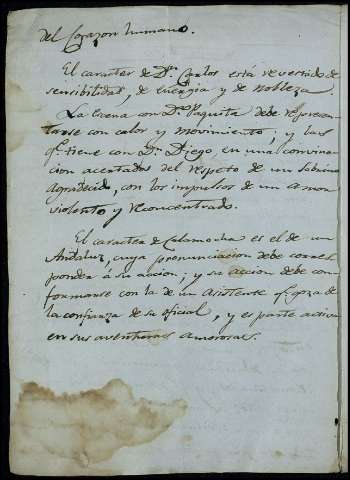 del Corazon humano.
El caracter de Dn. Carlos está revestido de
sensibilidad, de energia y de nobleza.
La Escena con Da. Paquita debe represen-
tarse con calor y movimiento; y las
qe. tiene con Dn. Diego, en una convina-
cion acertada del respeto de un sobrino
agradecido, con los impulsos de un amor
violento y reconcentrado.
El caracter de Calamocha es el de un
Andaluz, cuya pronunciacion debe corres-
ponder á su accion; y su accion debe con-
formarse con la de un asistente qe. goza de
la confianza de su oficial, y es parte activa
en sus aventuras amorosas.